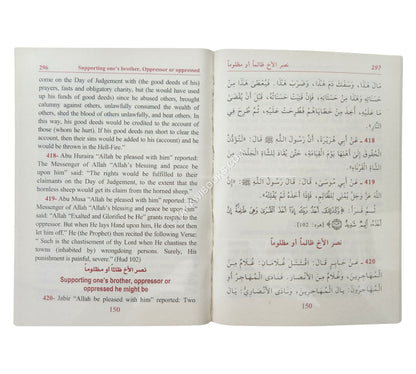 296 Supporting one's brother, Oppressor or oppressed
come on the Day of Judgement with (the good deeds of his)
prayers, fasts and obligatory charity, but (he would have used
up his funds of good deeds) since he abused others, brought
calumny against others, unlawfully consumed the wealth of
others, shed the blood of others unlawfully, and beat others. In
this way, his good deeds would be credited to the account of
those (whom he hurt). If his good deeds run short to clear the
account, then their sins would be added to his (account) and he
would be thrown in the Hell-Fire."
418- Abu Huraira "Allah be pleased with him" reported:
The Messenger of Allah "Allah's blessing and peace be upon
him" said: "The rights would be fulfilled to their
claimants on the Day of Judgement, to the extent that the
hornless sheep would get its claim from the horned sheep."
419- Abu Musa "Allah be pleased with him" reported: The
Messenger of Allah "Allah's blessing and peace be upon him"
said: "Allah "Exalted and Glorified be He" grants respite to the
oppressor. But when He lays Hand upon him, He does not then
let him off." He (the Prophet) then recited the following Verse:
" Such is the chastisement of thy Lord when He chastises the
towns (inhabited by) wrongdoing persons. Surely, His
punishment is painful, severe." (Hud 102)
نصر الأخ ظالمًا أو مظلومًا
Supporting one's brother, oppressor or
oppressed he might be
420- Jabir "Allah be pleased with him" reported: Two
150
نصر الأخ ظالماً أو مظلوماً 297
مَالَ هَذَا، وَسَفَكَ دَمَ هَذَا، وَضَرَبَ هَذَا. فَيُعْطَى هَذَا مِنْ
حَسَنَاتِهِ وَهَذَا مِنْ حَسَنَاتِهِ، فَإِنْ فَنِيَتْ حَسَنَاتُهُ، قَبْلَ أَنْ يُقْضَى
مَا عَلَيْهِ، أُخِذَ مِنْ خَطَايَاهُمْ فَطُرِحَتْ عَلَيْهِ، ثُمَّ طُرِحَ فِي
النَّارِ».
418 - عَنْ أَبِي هُرَيْرَةَ، أَنَّ رَسُولَ اللَّهِ ﷺ قَالَ: «لَتُؤَدُّنَّ
الْحُقُوقَ إِلَى أَهْلِهَا يَوْمَ الْقِيَامَةِ، حَتَّى يُقَادَ لِلشَّاةِ الْجَلْحَاءِ مِنَ
الشَّاةِ الْقَرْنَاءِ».
419 - عَنْ أَبِي مُوسَى، قَالَ: قَالَ رَسُولُ اللَّهِ ﷺ: «إِنَّ
اللَّهَ عَزَّ وَجَلَّ يُمْلِي لِلظَّالِمِ، فَإِذَا أَخَذَهُ لَمْ يُفْلِتْهُ».
ثُمَّ قَرَأَ: ﴿وَكَذَٰلِكَ أَخْذُ رَبِّكَ إِذَا أَخَذَ الْقُرَىٰ وَهِيَ ظَالِمَةٌ إِنَّ
أَخْذَهُ أَلِيمٌ شَدِيدٌ﴾ [هود: 102].
نصر الأخ ظالماً أو مظلوماً
420 - عَنْ جَابِرٍ قَالَ: اقْتَتَلَ غُلَامَانِ: غُلَامٌ مِنَ
الْمُهَاجِرِينَ، وَغُلَامٌ مِنَ الْأَنْصَارِ. فَنَادَى الْمُهَاجِرُ أَوِ
الْمُهَاجِرُونَ: يَالَ الْمُهَاجِرِينَ، وَنَادَى الْأَنْصَارِيُّ: يَالَ
150